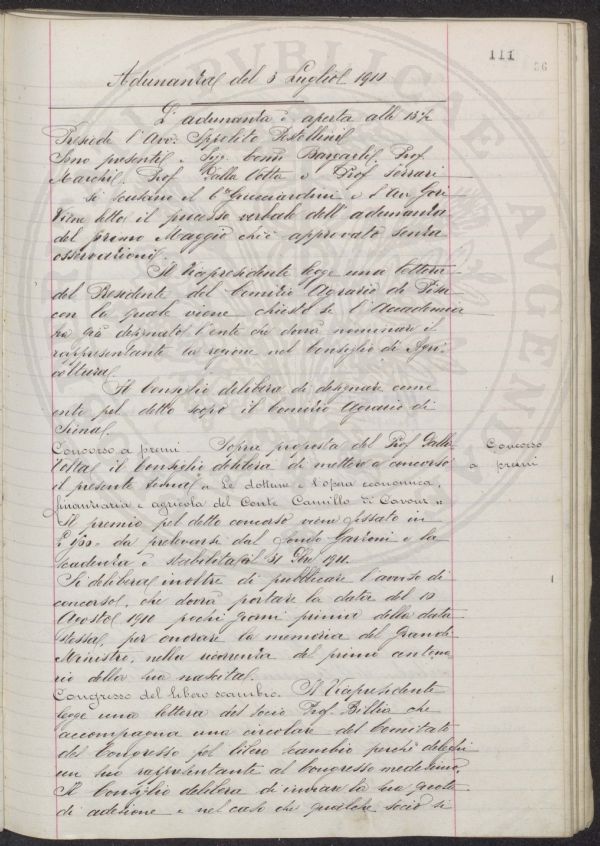 111
56
Adunanza del 3 Luglio 1910
L'adunanza è aperta alle 15½
Presiede l'Avv. Ippolito Pestellini
Sono presenti i Sigg. Bar. Prof.
Marchi, Prof. Dalla Volta e Prof. Ferrari
Si scusano il Cte Guicciardini e l'Avv. Gori
Viene letto il processo verbale dell'adunanza
del primo Maggio ch'è approvato senza
osservazioni.
Il Vicepresidente legge una lettera
del Presidente del Comizio Agrario di Pisa
con la quale viene chiesto se l'Accademia
ha già designato l'ente che dovrà nominare il
rappresentante la regione nel Consiglio di Agri-
coltura.
Il Consiglio delibera di designare come
ente pel detto scopo il Comizio Agrario di
Siena.
Concorso a premi. Sopra proposta del Prof. Dalla
Volta il Consiglio delibera di mettere a concorso
il presente tema "Le dottrine e l'opera economica,
finanziaria e agricola del Conte Camillo di Cavour"
Concorso
a premi
Il premio pel detto concorso viene fissato in
da prelevarsi dal fondo e la
scadenza è stabilita al 31 1911.
Si delibera inoltre di pubblicare l'avviso di
concorso, che dovrà portare la data del 10
Agosto 1910 pochi giorni prima della data
stessa, per onorare la memoria del Grande
Ministro, nella ricorrenza del primo centena-
rio della sua nascita.
Congresso del libero scambio. Il Vicepresidente
legge una lettera del socio Prof. Billia che
accompagna una circolare del Comitato
del Congresso pel libero scambio perchè deleghi
un suo rappresentante al Congresso medesimo.
Il Consiglio delibera di inviare la sua quota
di adesione e nel caso che qualche socio si